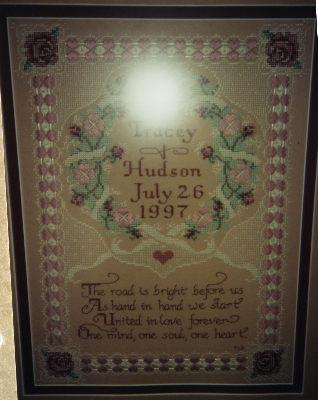 Tracey
Hudson
July 26
1997
The road is bright before us
As hand in hand we start
United in love forever
One mind, one soul, one heart